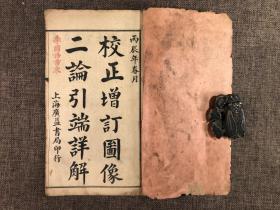 丙辰年春月
校正增訂圖像
二論引端詳解
上海廣益書局印行